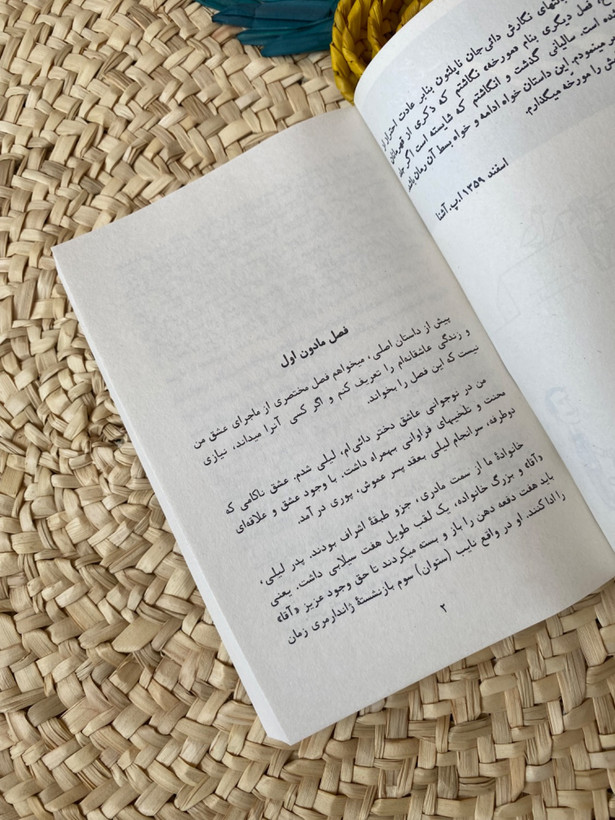 نگارش دائی‌جان ناپلئون بنابر عادت احتراز
فصل دیگری بنام «مورخه» نگاشتم که ذکری از قهرمانان
است. سالیانی گذشت و انگاشتم که شایسته است اگر
مینمودم، این داستان خواه ادامه و خواه بسط آن رمان باشد
را مورخه میگذارم.
اسفند ۱۳۵۹ ا.پ.آشنا
فصل مادون اول
پیش از داستان اصلی، میخواهم فصل مختصری از ماجرای عشق من
و زندگی عاشقانه‌ام را تعریف کنم و اگر کسی آنرا میداند، نیازی
نیست که این فصل را بخواند.
من در نوجوانی عاشق دختر دائی‌ام، لیلی شدم. عشق ناکامی که
محنت و تلخیهای فراوانی بهمراه داشت. با وجود عشق و علاقه‌ای
دوطرفه، سرانجام لیلی بعقد پسر عموش، پوری در آمد.
خانوادۀ ما از سمت مادری، جزو طبقۀ اشراف بودند. پدر لیلی،
«آقا» و بزرگ خانواده، یک لقب طویل هفت سیلابی داشت. یعنی
باید هفت دفعه دهن را باز و بسته میکردند تا حق وجود عزیز «آقا»
را ادا کنند. او در واقع نایب (ستوان) سوم بازنشستۀ ژاندارمری زمان
۲